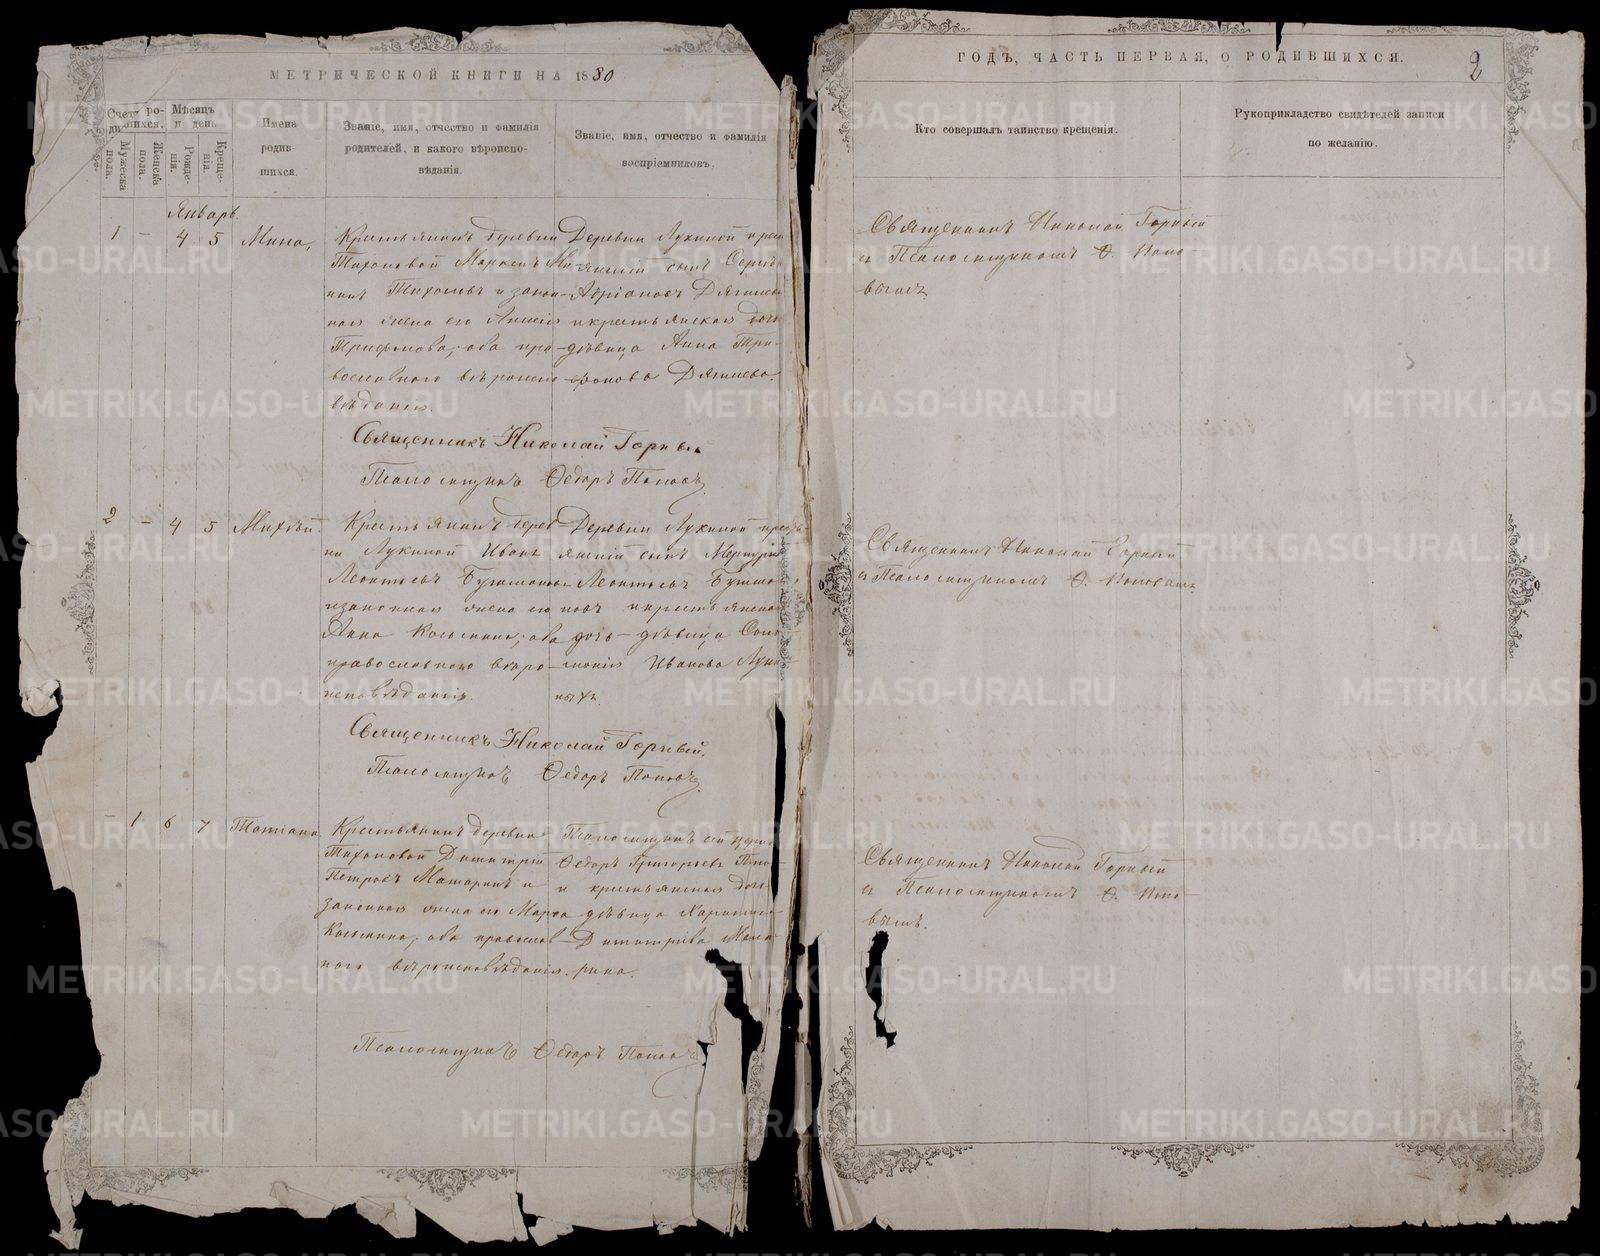 МЕТРИЧЕСКОЙ КНИГИ НА 1880
ГОДЪ, ЧАСТЬ ПЕРВАЯ, О РОДИВШИХСЯ.
2
Счетъ ро-
дившихся.
Мужеска
пола.
Женска
пола.
Мѣсяцъ
и день.
Рожде-
нія.
Креще-
нія.
Имена
родив-
шихся.
Званіе, имя, отчество и фамилія
родителей, и какого вѣроиспо-
вѣданія.
Званіе, имя, отчество и фамилія
воспріемниковъ.
Кто совершалъ таинство крещенія.
Рукоприкладство свидѣтелей записи
по желанію.
Январь.
1 – 4 5
Крестьянинъ деревни
Тихоновой
и закон-
ная жена его
Трифонова, оба пра-
вославнаго вѣроиспо-
вѣданія.
Деревни Лукиной крес
янскій сынъ
Адріановъ
и крестьянская дочь
дѣвица Анна Три-
фонова
Священникъ Николай Горный
и Псаломщикомъ Ѳ. Попо
вымъ
Священникъ Николай Горный
Псаломщикъ Ѳедоръ Поповъ
2 – 4 5
Михѣй
Крестьянинъ дерев
ни Лукиной Иванъ
Леонтьевъ
и законная жена его
Анна Козьмина, оба
православнаго вѣро-
исповѣданія.
Деревни Лукиной крес
янскій сынъ Меркурій
Леонтьевъ
и крестьянская
дочь дѣвица
Иванова
ныхъ.
Священникъ Николай Горный
и Псаломщикомъ Ѳ. Поповымъ.
Священникъ Николай Горный.
Псаломщикъ Ѳедоръ Поповъ
– 1 6 7
Татіана
Крестьянинъ деревни
Тихоновой Димитрій
Петровъ Матаринъ и
законная жена его Марѳа
Козьмина, оба православ
наго вѣроисповѣданія.
Псаломщикъ сей церкви
Ѳедоръ Григорьевъ Попо
и крестьянская дочь
дѣвица
Димитріева Мата-
рина.
Священникъ Николай Горный
и Псаломщикомъ Ѳ. Попо-
вымъ.
Псаломщикъ Ѳедоръ Поповъ
METRIKI.GASO-URAL.RU